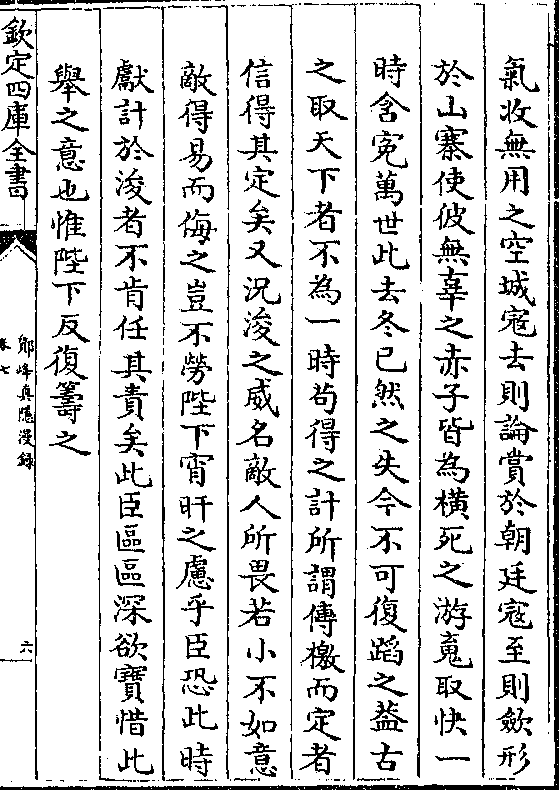 氣收無用之空城寇去則論賞於朝廷寇至則斂形
於山寨使彼無辜之赤子皆為橫死之游䰟取快一
時含寃萬世此去冬已然之失今不可復蹈之葢古
之取天下者不為一時茍得之計所謂傳檄而定者
信得其定矣又況浚之威名敵人所畏若小不如意
敵得易而侮之豈不勞陛下宵旰之慮乎臣恐此時
獻計於浚者不肯任其責矣此臣區區深欲寶惜此
舉之意也惟陛下反復籌之
欽定四庫全書
鄮峰真隱漫錄
卷七
六